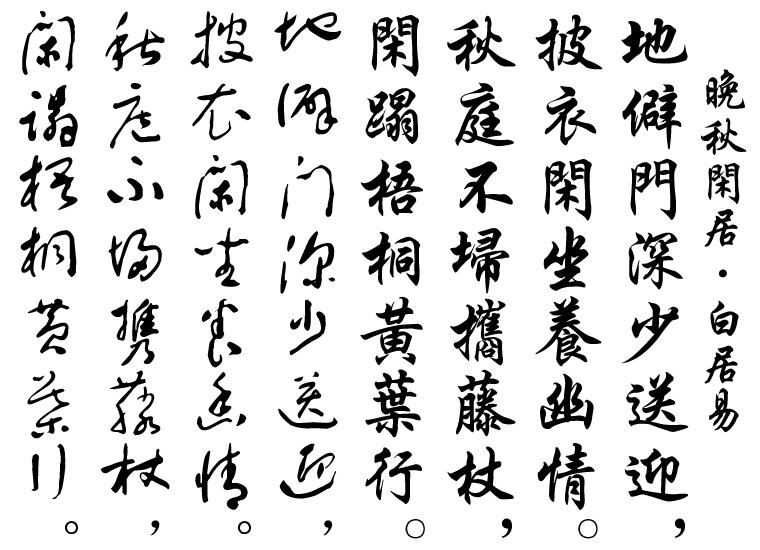 晚秋閑居·白居易
地僻門深少送迎，
披衣閑坐養幽情。
秋庭不埽攜藤杖，
閑蹋梧桐黃葉行。
地僻门深少送迎，
披衣闲坐养幽情。
秋庭不埽携藤杖，
闲蹋梧桐黄叶行。